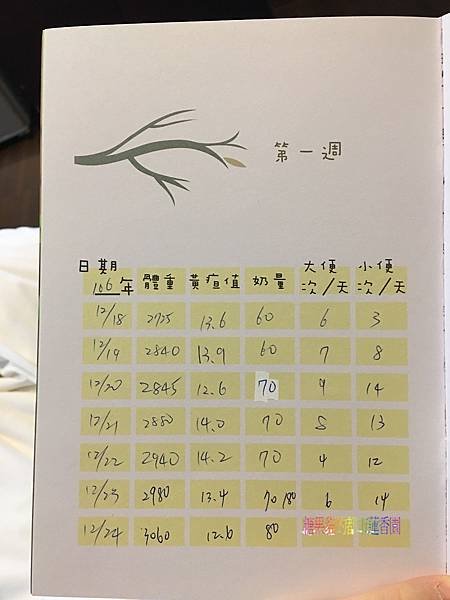 第一週
日期 大便 小便
106年 體重 黃疸值 奶量 次/天 次/天
12/18 2725 13.6 60 6 3
12/19 2840 13.9 60 7 8
12/20 2845 12.6 70 9 14
12/21 2880 14.0 70 8 13
12/22 2940 14.2 70 4 12
12/23 2980 13.4 70/80 6 14
12/24 3060 12.6 80